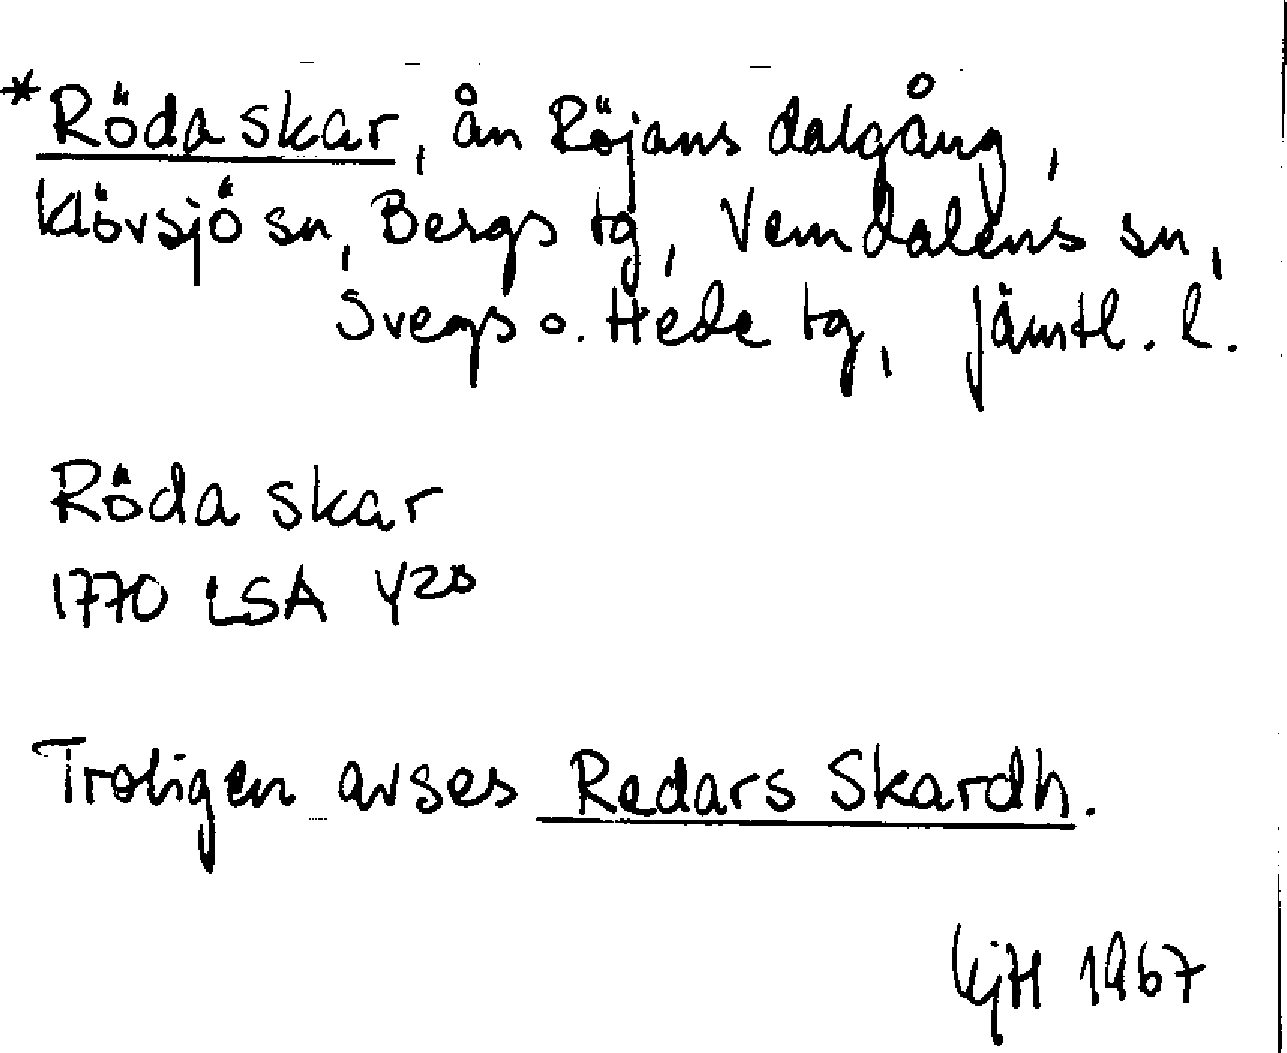 *Röda skar, ån Röjans dalgång,
Klövsjö sn, Bergs tg, Vemdalens sn,
Svegs o. Hede tg, Jämtl. l.
Röda skar
1770 LSA Y28
Troligen avses Redars Skardh.
KjH 1967